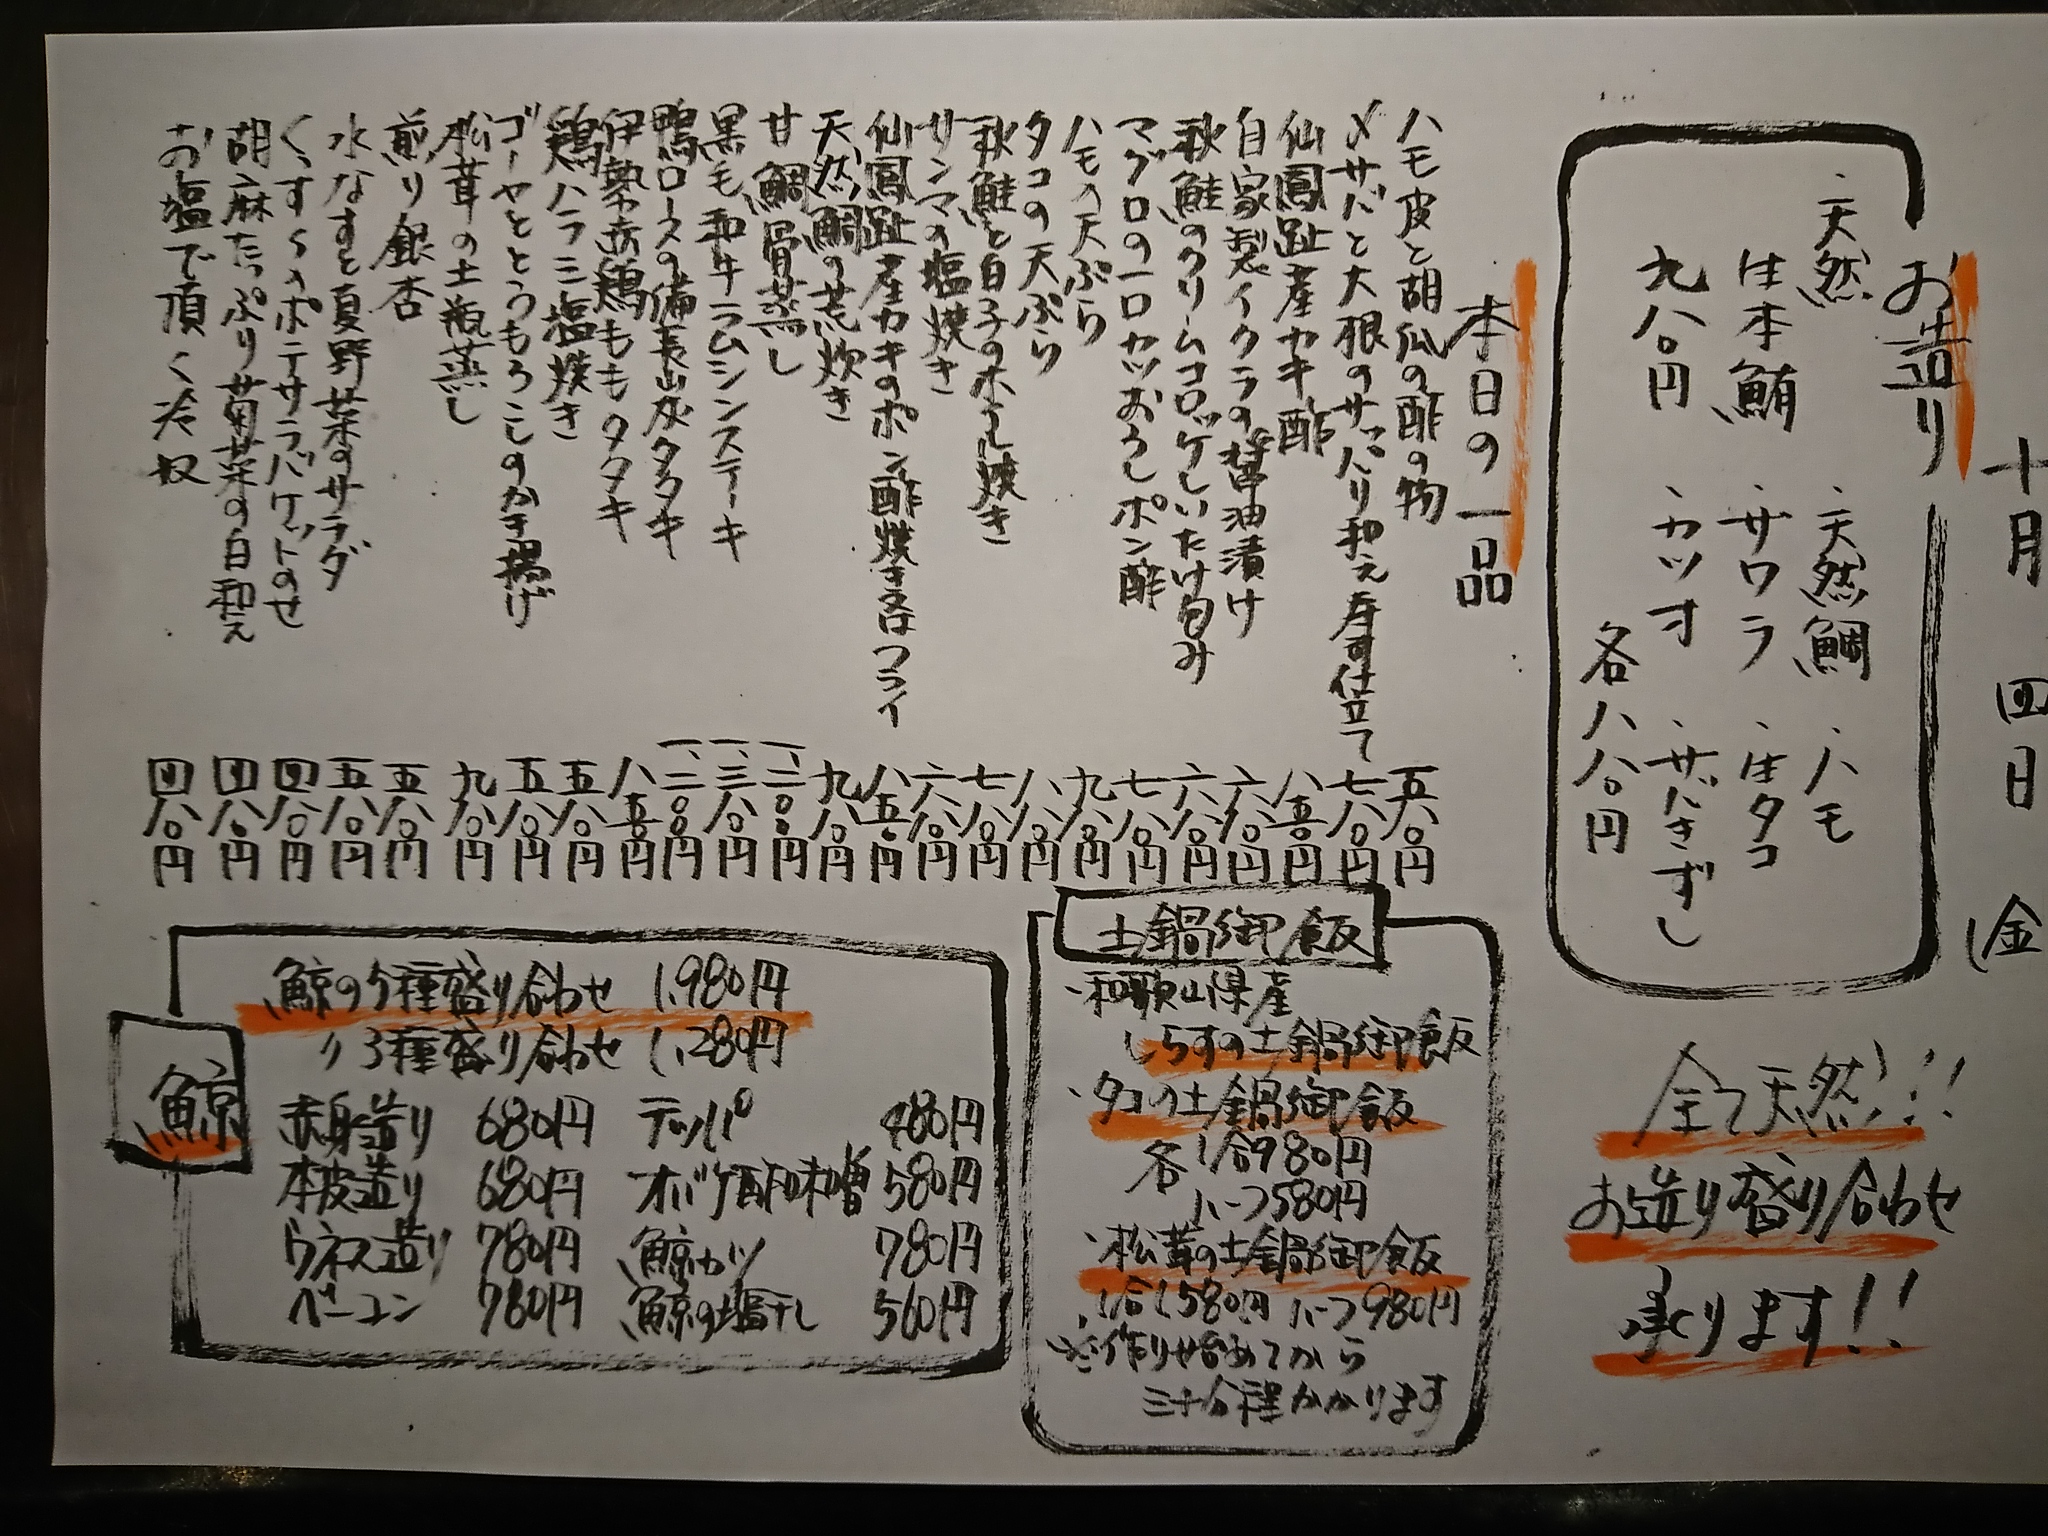 十月 四日 (金
お造り
・天然
生本鮪
九八〇円
・天然鯛
・ハモ
・サワラ
・生タコ
・カツオ
・サバきずし
各八八〇円
全て天然!!!
お造り盛り合わせ
承ります!!
本日の一品
ハモ皮と胡瓜の酢の物 五八〇円
〆サバと大根のサッパリ和え寿司仕立て 七八〇円
仙鳳趾産カキ酢 八五〇円
自家製イクラの醤油漬け 六八〇円
秋鮭のクリームコロッケしいたけ包み 六八〇円
マグロの一口カツおろしポン酢 七八〇円
ハモの天ぷら 九八〇円
タコの天ぷら 八八〇円
秋鮭と白子のホイル焼き 七八〇円
サンマの塩焼き 六八〇円
仙鳳趾産カキのポン酢焼き又はフライ 八五〇円
天然鯛の荒炊き 九八〇円
甘鯛骨蒸し 一、二〇〇円
黒毛和牛ラムシンステーキ 一、三八〇円
鴨ロースの備長炭タタキ 一、二〇〇円
伊勢赤鶏ももタタキ 八五〇円
鶏ハラミ塩焼き 五八〇円
ゴーヤととうもろこしのかき揚げ 五八〇円
松茸の土瓶蒸し 九八〇円
煎り銀杏 五八〇円
水なすと夏野菜のサラダ 五八〇円
くずし々のポテサラバケットのせ 四八〇円
胡麻たっぷり菊菜の白和え 四八〇円
お塩で頂く冷奴 四八〇円
土鍋御飯
・和歌山県産
しらすの土鍋御飯
・タコの土鍋御飯
各 1合980円
ハーフ580円
・松茸の土鍋御飯
1合1,580円 ハーフ980円
※作り始めてから
三十分程かかります
鯨
鯨の5種盛り合わせ 1,980円
〃3種盛り合わせ 1,280円
赤身造り 680円 テッパ 480円
本皮造り 680円 オバケ酢味噌 580円
ウネス造り 780円 鯨カツ 780円
ベーコン 780円 鯨の塩干し 560円